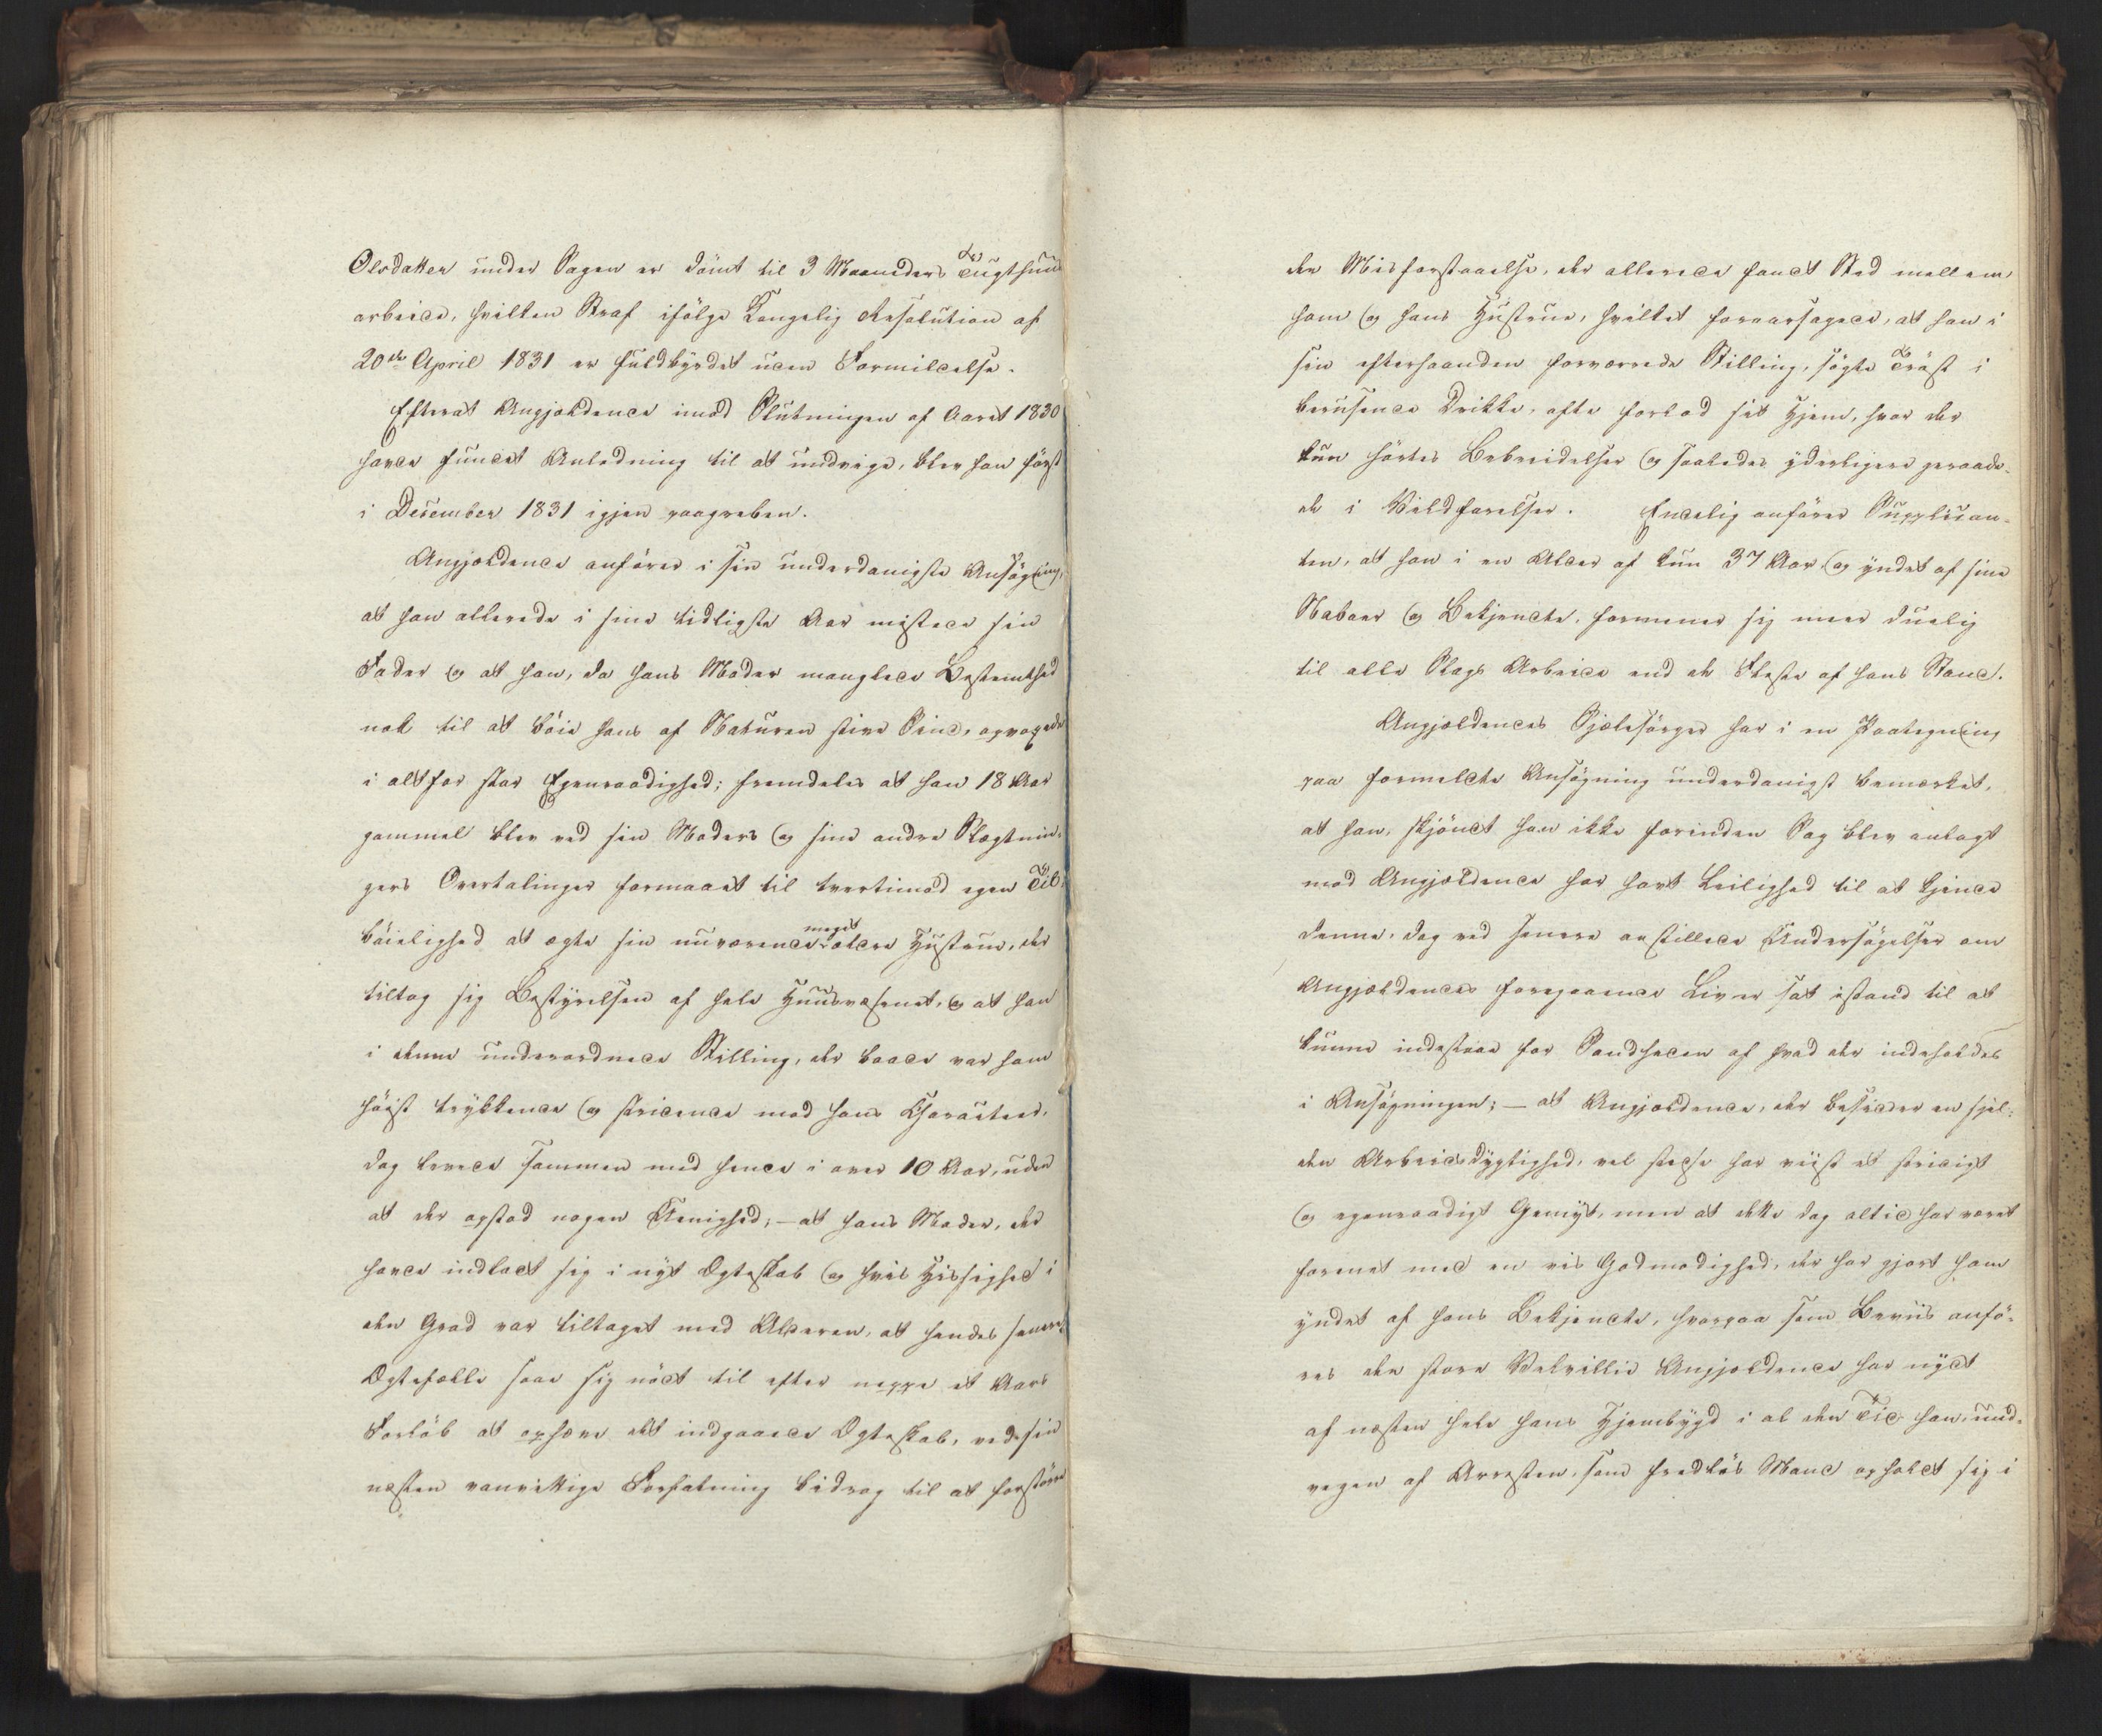 Olsdatter under Sagen er dömt til 3 Maaneders Tugthuus
arbeide, hvilken Straf ifölge Kongelig Resolution af
20de April 1831 er fuldbyrdet uden Formildelse.
Efterat Angjældende imod Slutningen af Aaret 1830
havde fundet Anledning til at undvige, blev han först
i December 1831 igjen paagreben.
Angjældende anförer i sin underdanigste Ansögning,
at han allerede i sine tidligste Aar mistede sin
Fader og at han, da hans Moder manglede Bestemthed
nok til at böie hans af Naturen stive Sind, opvoxede
i altfor stor Egenraadighed; fremdeles at han 18 Aar
gammel blev ved sin Moders og sine andre Slægtnin-
gers Overtalinger formaaet til tvertimod egen Til-
böielighed at ægte sin nuværende meget ældre Hustrue, der
tiltog sig Bestyrelsen af hele Huusvæsenet, og at han
i denne underordnede Stilling, der baade var ham
höist trykkende og stridende mod hans Character,
dog levede sammen med hende i over 10 Aar, uden
at der opstod nogen Uenighed; - at hans Moder, der
havde indladt sig i nyt Ægteskab og hvis Hissighed i
den Grad var tiltaget med Alderen, at hendes senere
Ægtefælle saae sig nödt til efter neppe et Aars
Forlöb at ophæve det indgaaede Ægteskab, ved sin
næsten vanvittige Forfatning bidrog til at forstörre
den Misforstaaelse, der allerede fandt Sted mellem
ham og hans Hustrue, hvilket foraarsagede, at han i
sin efterhaanden forværrede Stilling, sögte Tröst i
berusende Drikke, ofte forlod sit Hjem, hvor der
kun hörtes Bebreidelser og saaledes yderligere geraade-
de i Vildfarelser. Endelig anförer Supplican-
ten, at han i en Alder af kun 37 Aar, og yndet af sine
Naboer og Bekjendte, formener sig meer duelig
til alle Slags Arbeide end de Fleste af hans Stand.
Angjældendes Sjelesörger har i en Paategning
paa formeldte Ansögning underdanigst bemærket,
at han, skjöndt han ikke forinden Sag blev anlagt
mod Angjældende har havt Leilighed til at kjende
denne, dog ved senere anstillede Undersögelser om
Angjældendes foregaaende Liv er sat istand til at
kunne indestaae for Sandheden af hvad der indeholdes
i Ansögningen; - at Angjældende, der besidder en sjel-
den Arbeidsdygtighed, vel stedse har viist et stridigt
og egenraadigt Gemyt, men at dette dog altid har været
forenet med en vis Godmodighed, der har gjort ham
yndet af hans Bekjendte, hvorpaa som Beviis anfö-
res den store Velvillie Angjældende har nydt
af næsten hele hans Hjembygd i al den Tid han, und-
vegen af Arresten, som fredlös Mand opholdt sig i